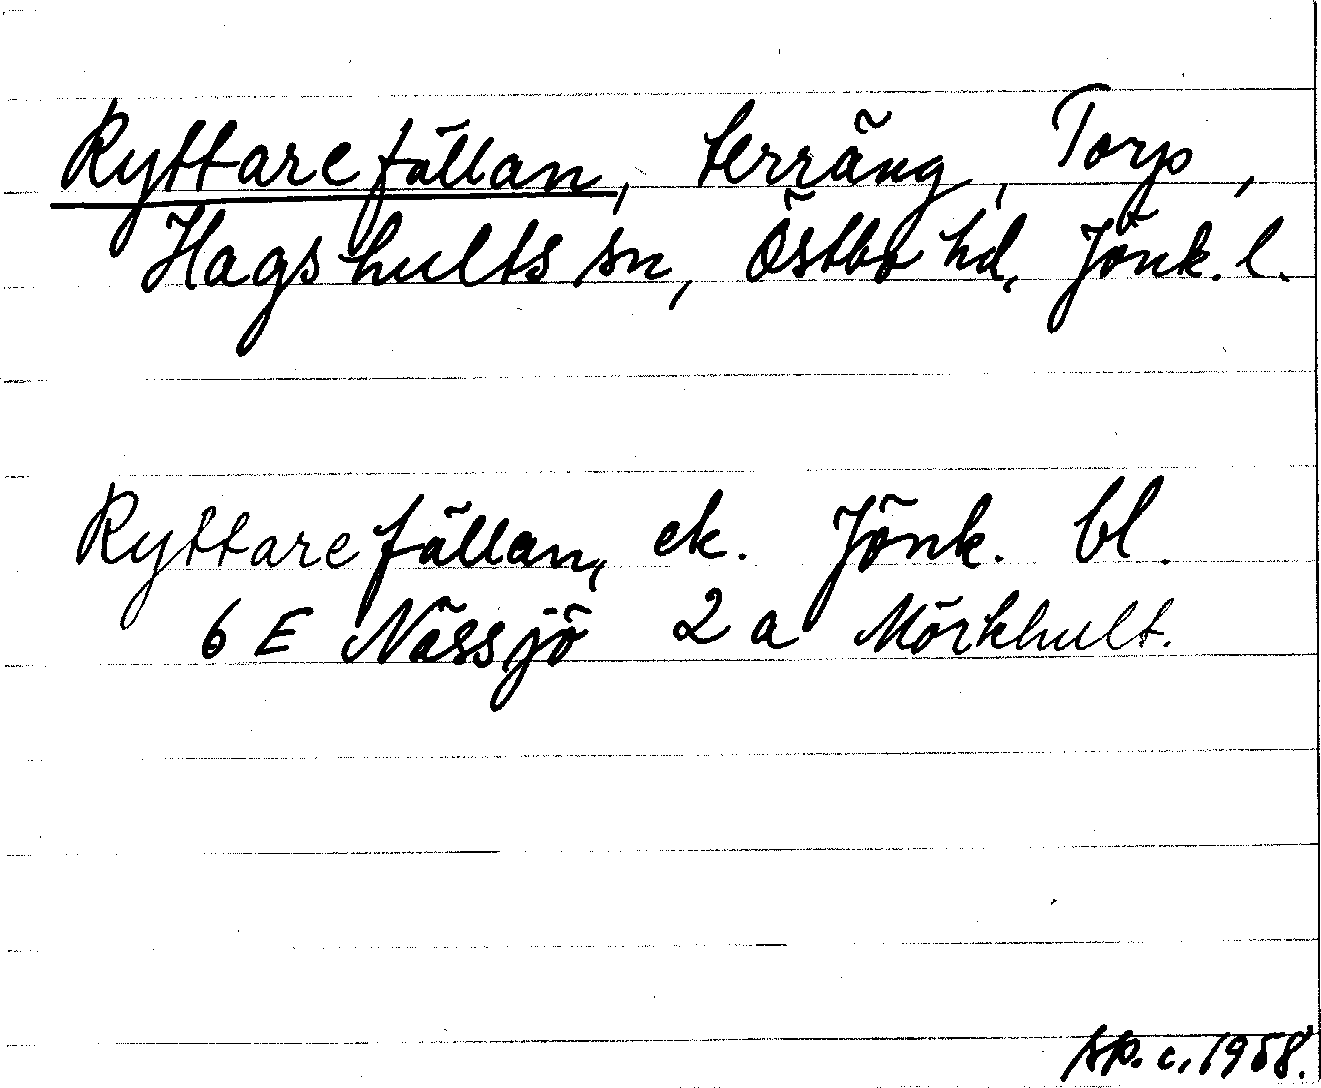 Ryttarefällan, terräng, Torp,
Hagshults sn, Östbo hd, Jönk. l.
Ryttarefällan, ek. Jönk. bl.
6 E Nässjö 2 a Mörkhult.
sp. c. 1958.